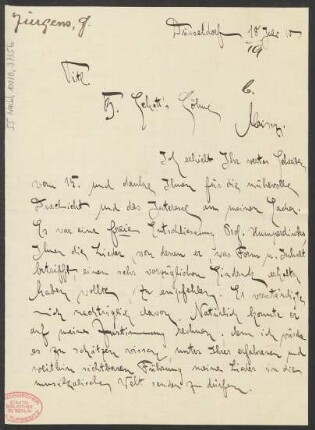 Jürgens, J.
Düsseldorf 18 Juli
19
Titl
B. Schott's Söhne
Mainz.
Ich erhielt Ihr wertes Schreiben
vom 15. und danke Ihnen für die mühevolle
Durchsicht und das Interesse an meinen Sachen.
Es war eine freie Entschliessung Prof. Humperdincks
Ihnen die Lieder, von denen er was Form u. Inhalt
betrifft, einen sehr vorzüglichen Eindruck erhalten
haben wollte, zu empfehlen. Er verständigte
mich nachträglich davon. Natürlich konnte er
auf meine Zustimmung rechnen, denn ich würde
es zu schätzen wissen, unter Ihrer erfahrenen und
weithin sichtbaren Führung meine Lieder in die
musikalische Welt senden zu dürfen.